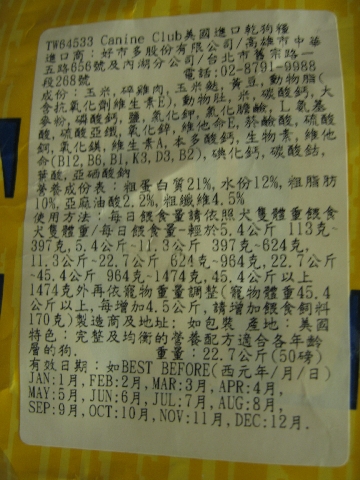 TW64533 Canine Club美國進口乾狗糧
進口商：好市多股份有限公司/高雄市中華
五路656號及內湖分公司/台北市舊宗路一
段268號 電話:02-8791-9988
成份：玉米,碎雞肉,玉米麩,黃豆,動物脂(
含抗氧化劑維生素E),動物肚,米,碳酸鈣,大
麥粉,磷酸鈣,鹽,氯化鉀,氯化膽鹼,L氨基
酸,碳酸亞鐵,氧化鋅,維他命E,菸鹼酸,硫酸
銅,氧化鎂,維生素A,本多酸鈣,生物素,維他
命(B12,B6,B1,K3,D3,B2),碘化鈣,碳酸鈷,
葉酸,亞硒酸鈉
營養成份表：粗蛋白質21%,水份12%,粗脂肪
10%,亞麻油酸2.2%,粗纖維4.5%
使用方法：每日餵食量請依照犬隻體重餵食
犬隻體重/每日餵食量-輕於5.4公斤 113克~
397克,5.4公斤~11.3公斤 397克~624克,
11.3公斤~22.7公斤 624克~964克,22.7公斤
~45.4公斤 964克~1474克,45.4公斤以上
1474克外再依寵物重量調整(寵物體重45.4
公斤以上,每增加4.5公斤,請增加餵食飼料
170克)製造商及地址：如包裝 產地：美國
特色：完整及均衡的營養配方適合各年齡
層的狗. 重量：22.7公斤(50磅)
有效日期：如BEST BEFORE(西元年/月/日)
JAN:1月,FEB:2月,MAR:3月,APR:4月,
MAY:5月,JUN:6月,JUL:7月,AUG:8月,
SEP:9月,OCT:10月,NOV:11月,DEC:12月.